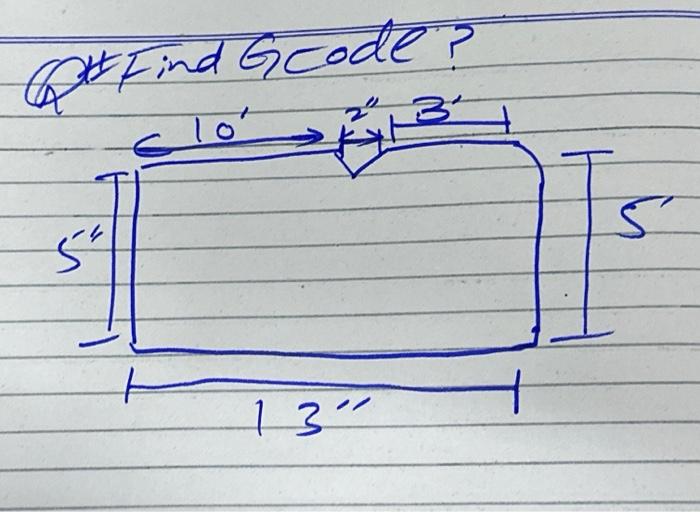 Q# Find Gcode?
10' 2" 3'
5" 5'
13"